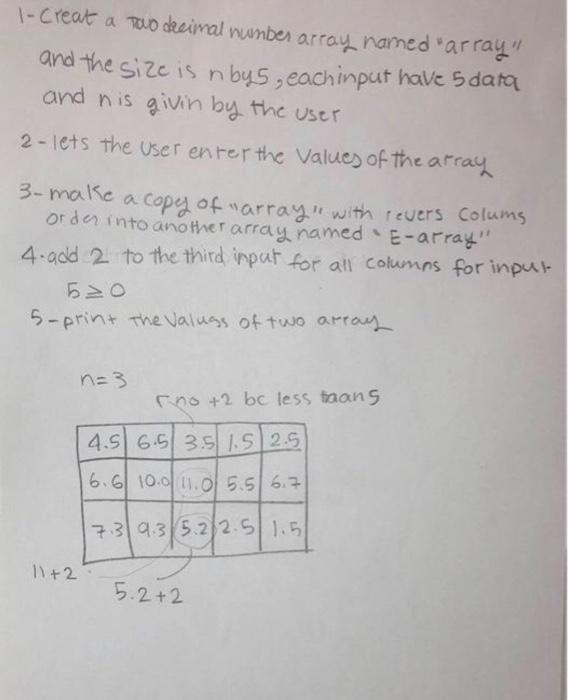 1-Creat a Two decimal number array named "array"
and the size is n by 5, each input have 5 data
and n is givin by the user
2-lets the user enter the Values of the array
3-make a copy of "array" with revers Colums
order into another array named "E-array"
4-add 2 to the third input for all columns for input
5≥0
5-print The Values of two array
n=3
no +2 bc less taan 5
4.5 6.5 3.5 1.5 2.5
6.6 10.0 11.0 5.5 6.7
7.3 9.3 5.2 2.5 1.5
11+2
5.2+2